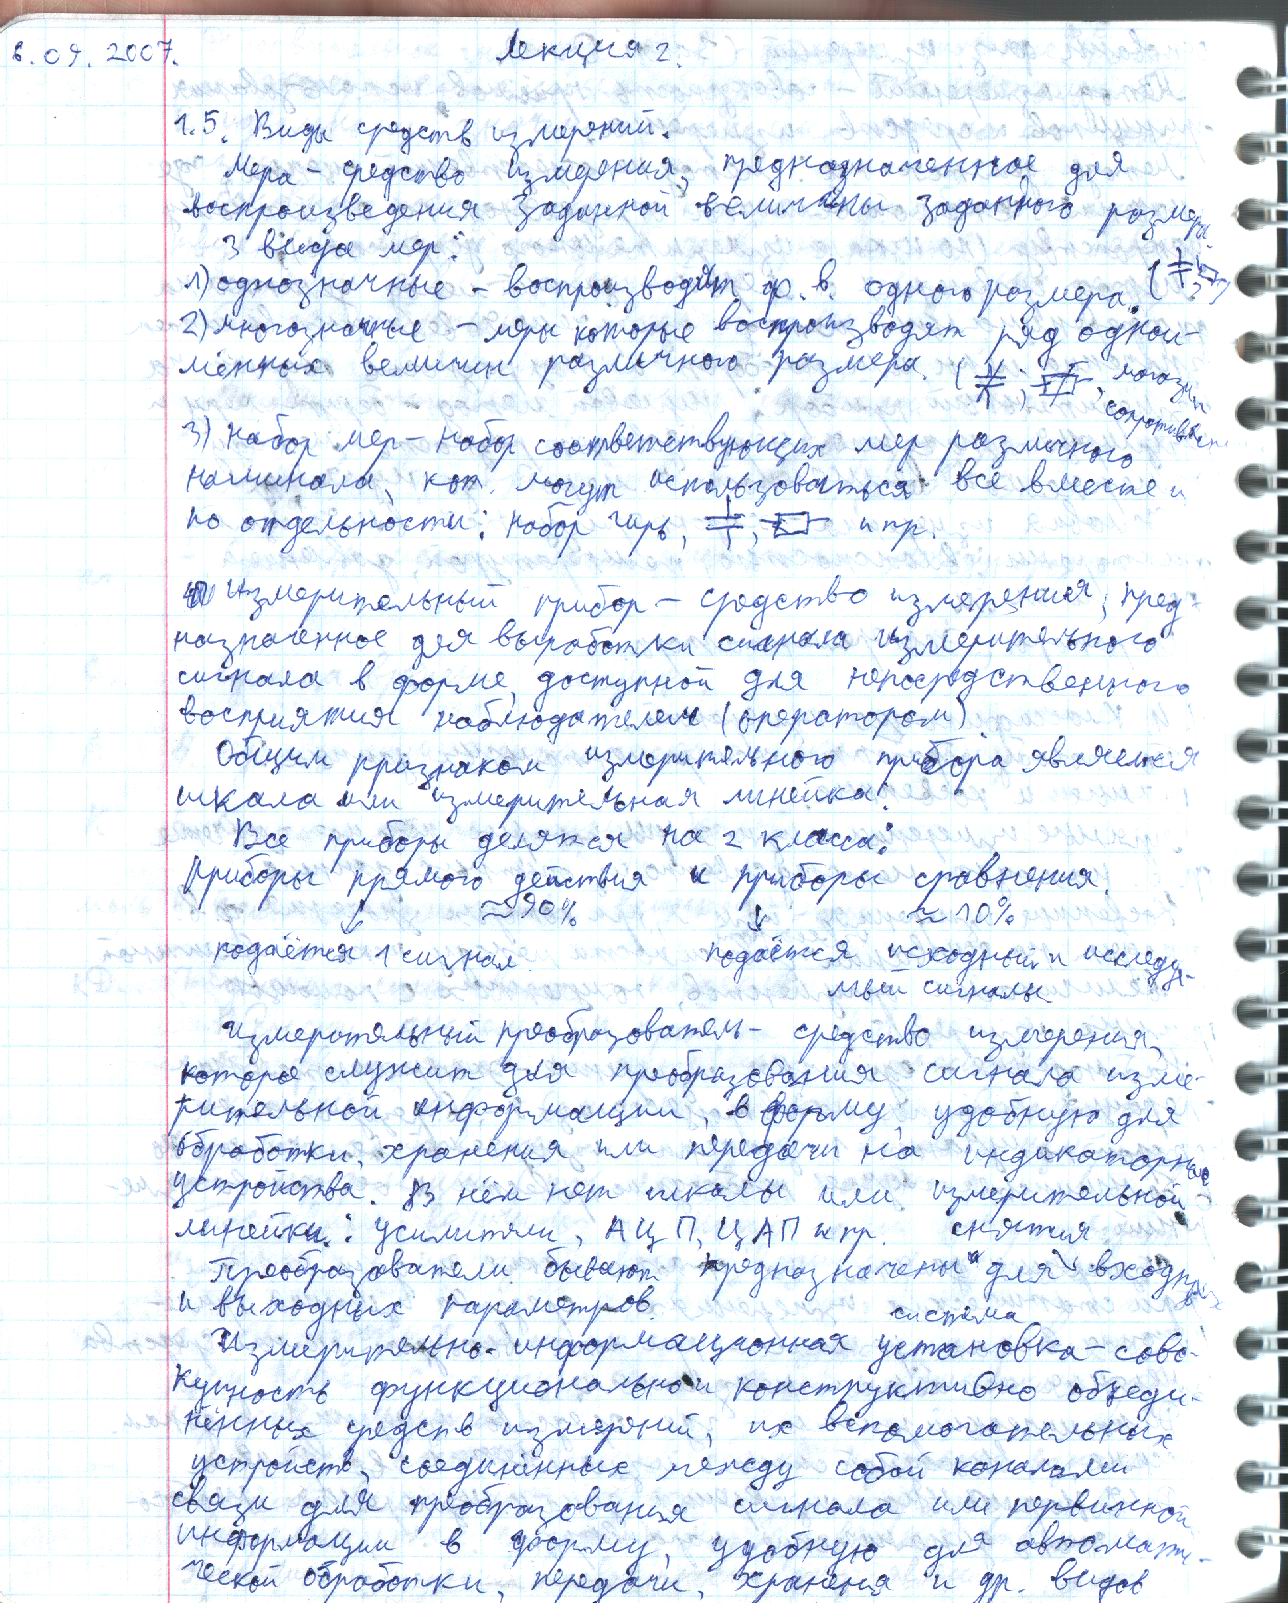 6.09.2007. Лекция 2.
1.5. Виды средств измерений.
Мера – средство измерения, предназначенное для
воспроизведения заданной величины заданного размера.
3 вида мер:
1) однозначные – воспроизводят ф.в. одного размера.
2) многозначные – меры которые воспроизводят ряд одноим-
лённых величин различного размера. ( , , магазин
сопротивлен
3) Набор мер – набор соответствующих мер различного
наминала, кот. могут использоваться все вместе и
по отдельности: набор гирь, , и пр.
Измерительный прибор – средство измерения, пред-
назначенное для выработки сигнала измерительного
сигнала в форме, доступной для непосредственного
восприятия наблюдателем (оператором)
Общим признаком измерительного прибора является
шкала или измерительная линейка.
Все приборы делятся на 2 класса:
Приборы прямого действия и приборы сравнения.
↓ ≈90% ↓ ≈10%
подаётся 1 сигнал подаётся исходный и исследуе-
мый сигналы.
Измерительный преобразователь – средство измерения,
которое служит для преобразования сигнала изме-
рительной информации в форму, удобную для
обработки, хранения или передачи на индикаторные
устройства. В нём нет шкалы или измерительной
линейки.: усилители, АЦП, ЦАП и пр. снятия
Преобразователи бывают предназначены для входных
и выходных параметров.
система
Измерительно-информационная установка – сово-
купность функционально и конструктивно объеди-
нённых средств измерений, их вспомогательных
устройств, соединённых между собой каналами
связи для преобразования сигнала или первичной
информации в форму, удобную для автомати-
ческой обработки, передачи, хранения и др. видов